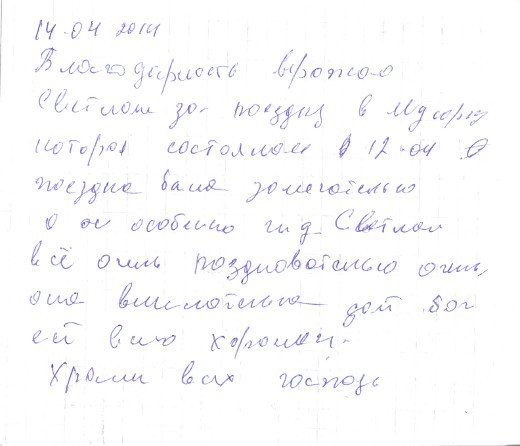 14.04 2014
Благодарность выражаю
Светлане за поездку в
которая состоялась 12.04
поездка была замечательно
особенно гид Светлан
всё очень познавательно очень
она внимательна дай бог
ей всего хорошего.
Храни вас господь